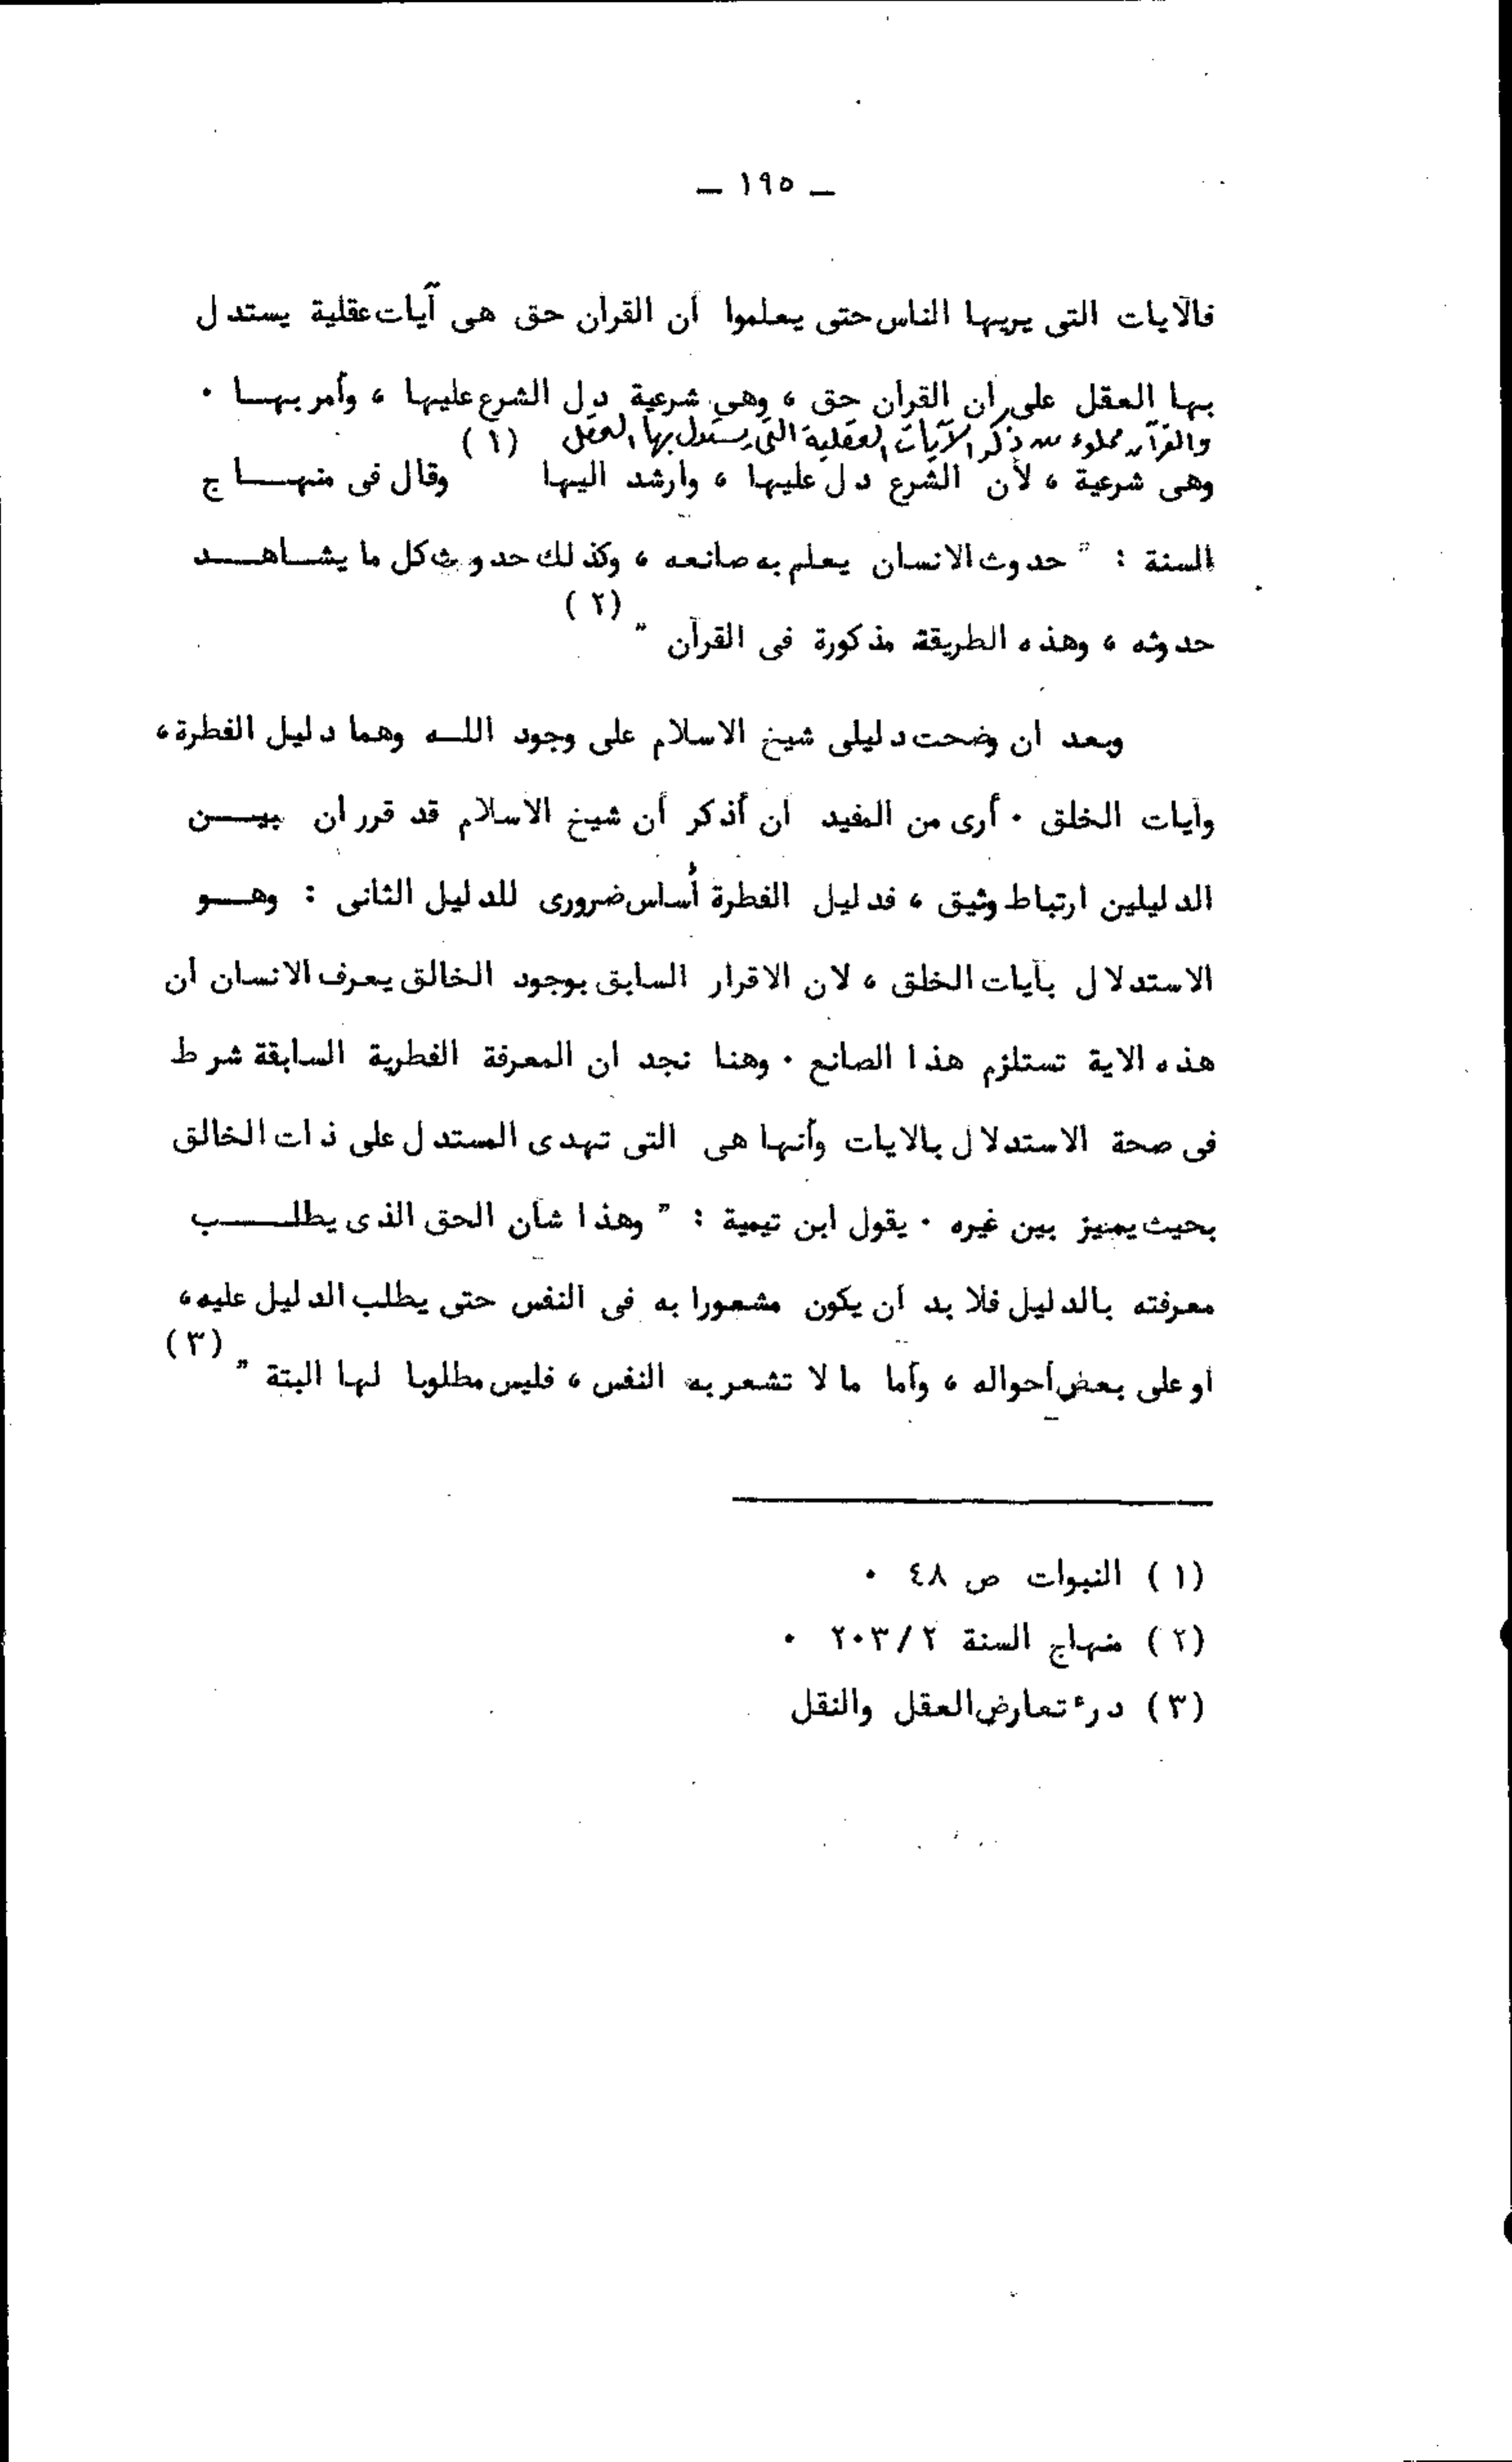 — ١٩٥ —
فالآيات التى يريها الناس حتى يعلموا أن القرآن حق هى آيات عقلية يستدل
بها العقل على أن القرآن حق ، وهى شرعية دل الشرع عليها ، وأمر بها .
والقرآن مملوء من ذكر الآيات العقلية التى يستدل بها العقل (١)
وهى شرعية ، لأن الشرع دل عليها ، وأرشد اليها وقال فى منهاج
السنة : " حدوث الانسان يعلم به صانعه ، وكذلك حدوث كل ما يشاهد
حدوثه ، وهذه الطريقة مذكورة فى القرآن " (٢)
وبعد ان وضحت دليلى شيخ الاسلام على وجود الله وهما دليل الفطرة ،
وآيات الخلق . أرى من المفيد أن أذكر أن شيخ الاسلام قد قرر أن بين
الدليلين ارتباط وثيق ، فدليل الفطرة أساس ضرورى للدليل الثانى : وهو
الاستدلال بآيات الخلق ، لان الاقرار السابق بوجود الخالق يعرف الانسان أن
هذه الاية تستلزم هذا الصانع . وهنا نجد ان المعرفة الفطرية السابقة شرط
فى صحة الاستدلال بالايات وأنها هى التى تهدى المستدل على ذات الخالق
بحيث يميز بين غيره . يقول ابن تيمية : " وهذا شأن الحق الذى يطلب
معرفته بالدليل فلا بد أن يكون مشعورا به فى النفس حتى يطلب الدليل عليه ،
او على بعض أحواله ، وأما ما لا تشعر به النفس ، فليس مطلوبا لها البتة " (٣)
(١) النبوات ص ٤٨ .
(٢) منهاج السنة ٢/٢٠٣ .
(٣) درء تعارض العقل والنقل